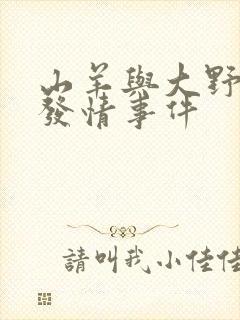 山羊與大野
發情事件
請叫我小佳佳